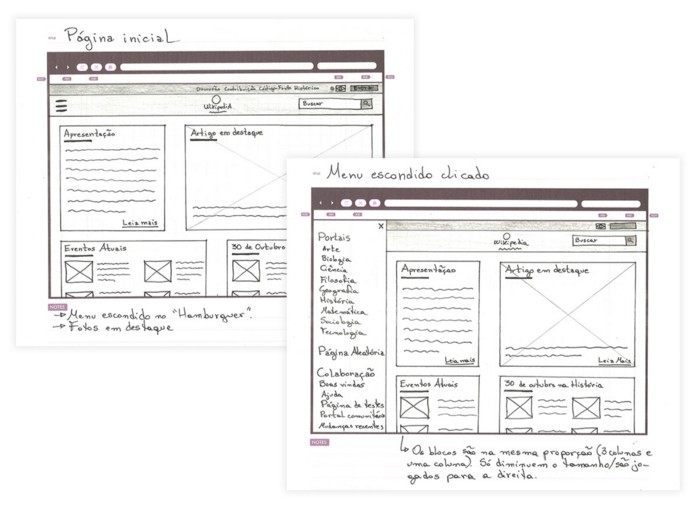 Página inicial
Discussão Contribuição Código-Fonte Histórico
Wikipedia
Buscar
Apresentação
Leia mais
Artigo em destaque
Eventos Atuais
30 de Outubro
NOTES
→ Menu escondido no "Hamburguer".
→ Fotos em destaque
Menu escondido clicado
X
Wikipedia
Buscar
Portais
Arte
Biologia
Ciência
Filosofia
Geografia
História
Matemática
Sociologia
Tecnologia
Página Aleatória
Colaboração
Boas vindas
Ajuda
Página de testes
Portal comunitário
Mudanças recentes
Apresentação
Leia mais
Artigo em destaque
Leia Mais
Eventos Atuais
30 de outubro na História
NOTES
↳ Os blocos são na mesma proporção (3 colunas e
uma coluna). Só diminuem o tamanho/são jo-
gados para a direita.